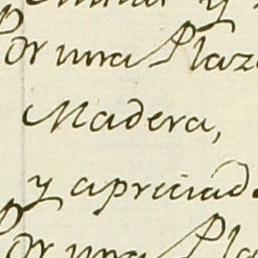 y
Por una Plaz
Madera,
y apriciad
Por una Pla